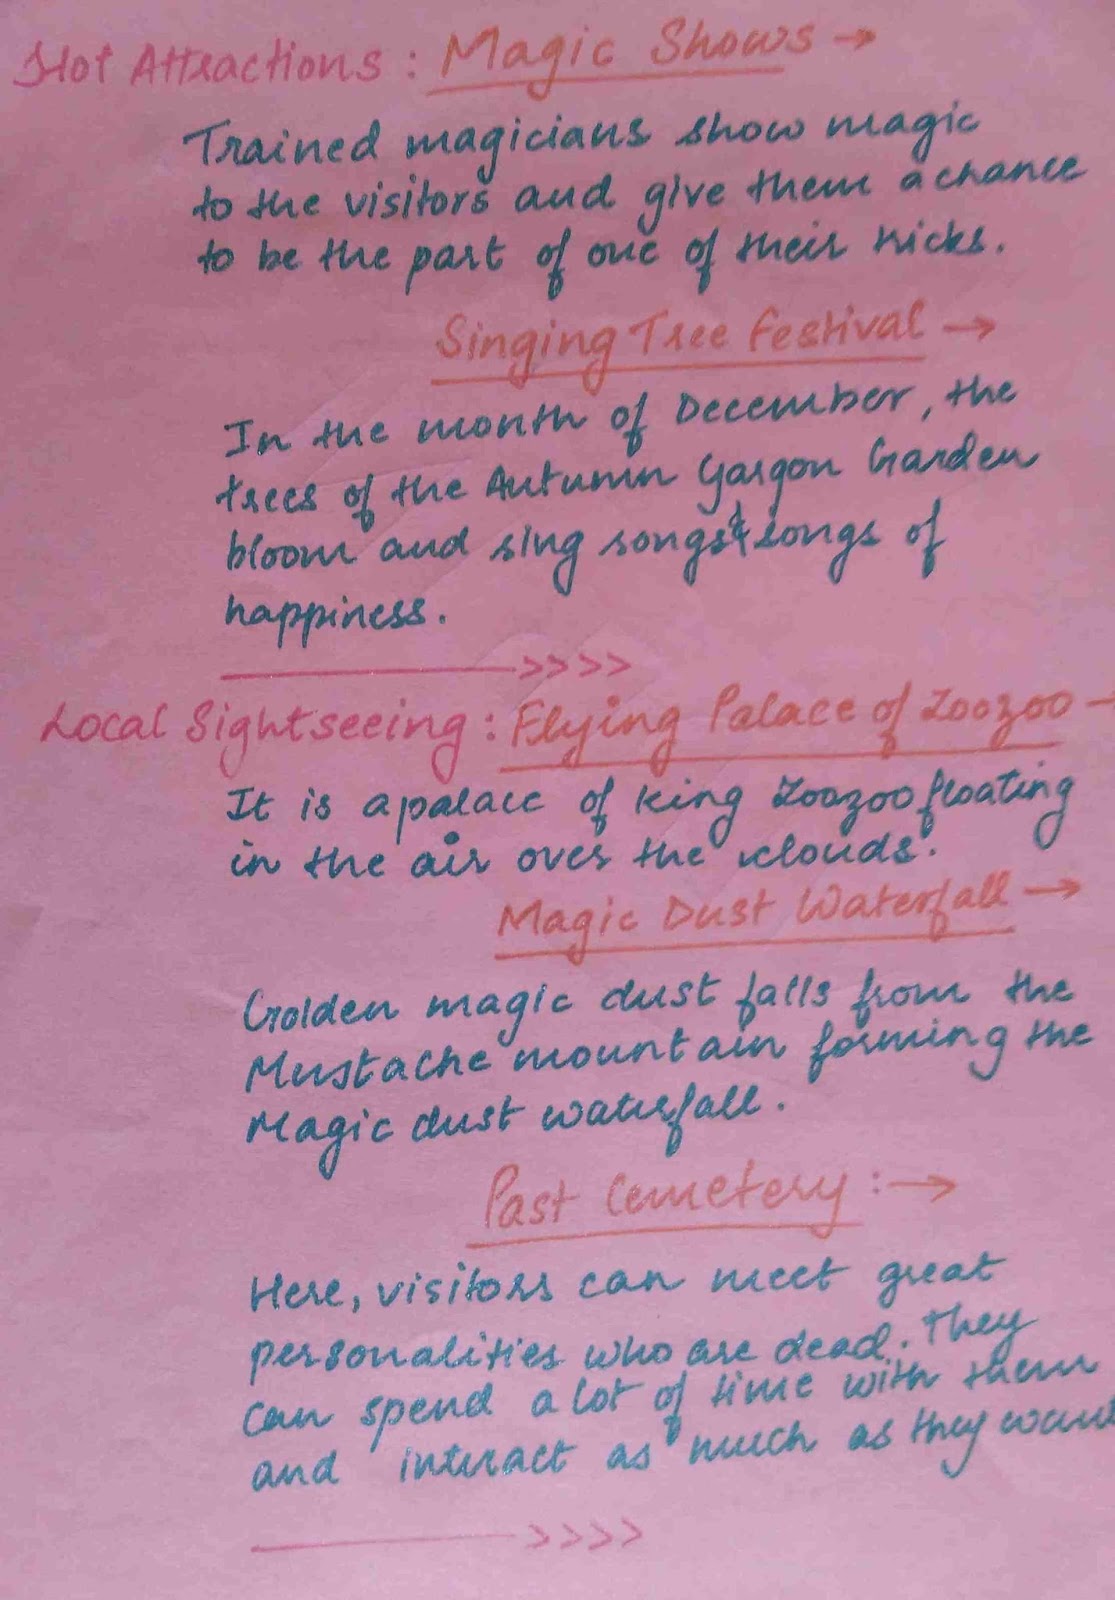 Hot Attractions : Magic Shows →
Trained magicians show magic
to the visitors and give them a chance
to be the part of one of their tricks.
Singing Tree Festival →
In the month of December, the
trees of the Autumn Gargon Garden
bloom and sing songs & songs of
happiness.
>>>>
Local Sightseeing : Flying Palace of Zoozoo →
It is a palace of king Zoozoo floating
in the air over the clouds.
Magic Dust Waterfall →
Golden magic dust falls from the
Mustache mountain forming the
Magic dust waterfall.
Past Cemetery : →
Here, visitors can meet great
personalities who are dead. They
can spend a lot of time with them
and interact as much as they want
>>>>